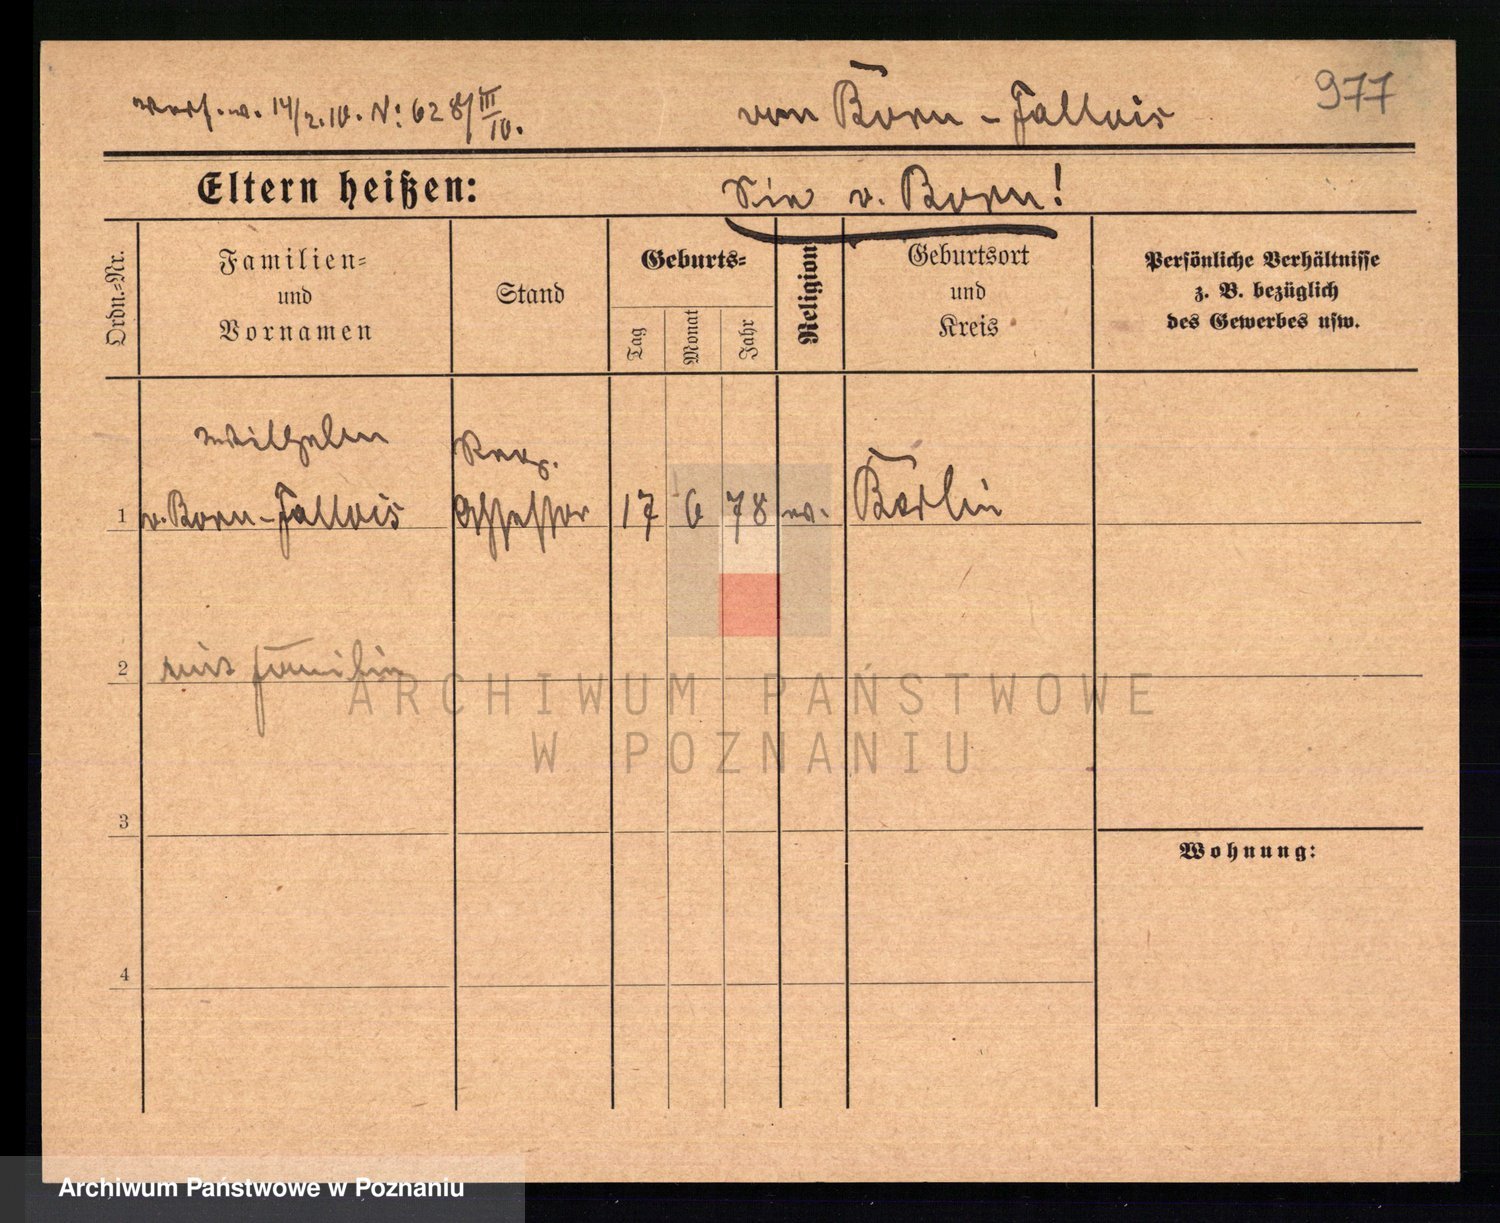 14/2.10. N: 628/III 10.
von Born-Fallois
977
Eltern heißen:
Sie v. Born!
Ordn.-Nr.
Familien-
und
Vornamen
Stand
Geburts-
Tag
Monat
Jahr
Religion
Geburtsort
und
Kreis
Persönliche Verhältnisse
z. B. bezüglich
des Gewerbes usw.
Wilhelm
1 v. Born-Fallois
Assessor
17 6 78 ev. Berlin
2 mit Familie
3
4
Wohnung:
ARCHIWUM PAŃSTWOWE
W POZNANIU
Archiwum Państwowe w Poznaniu